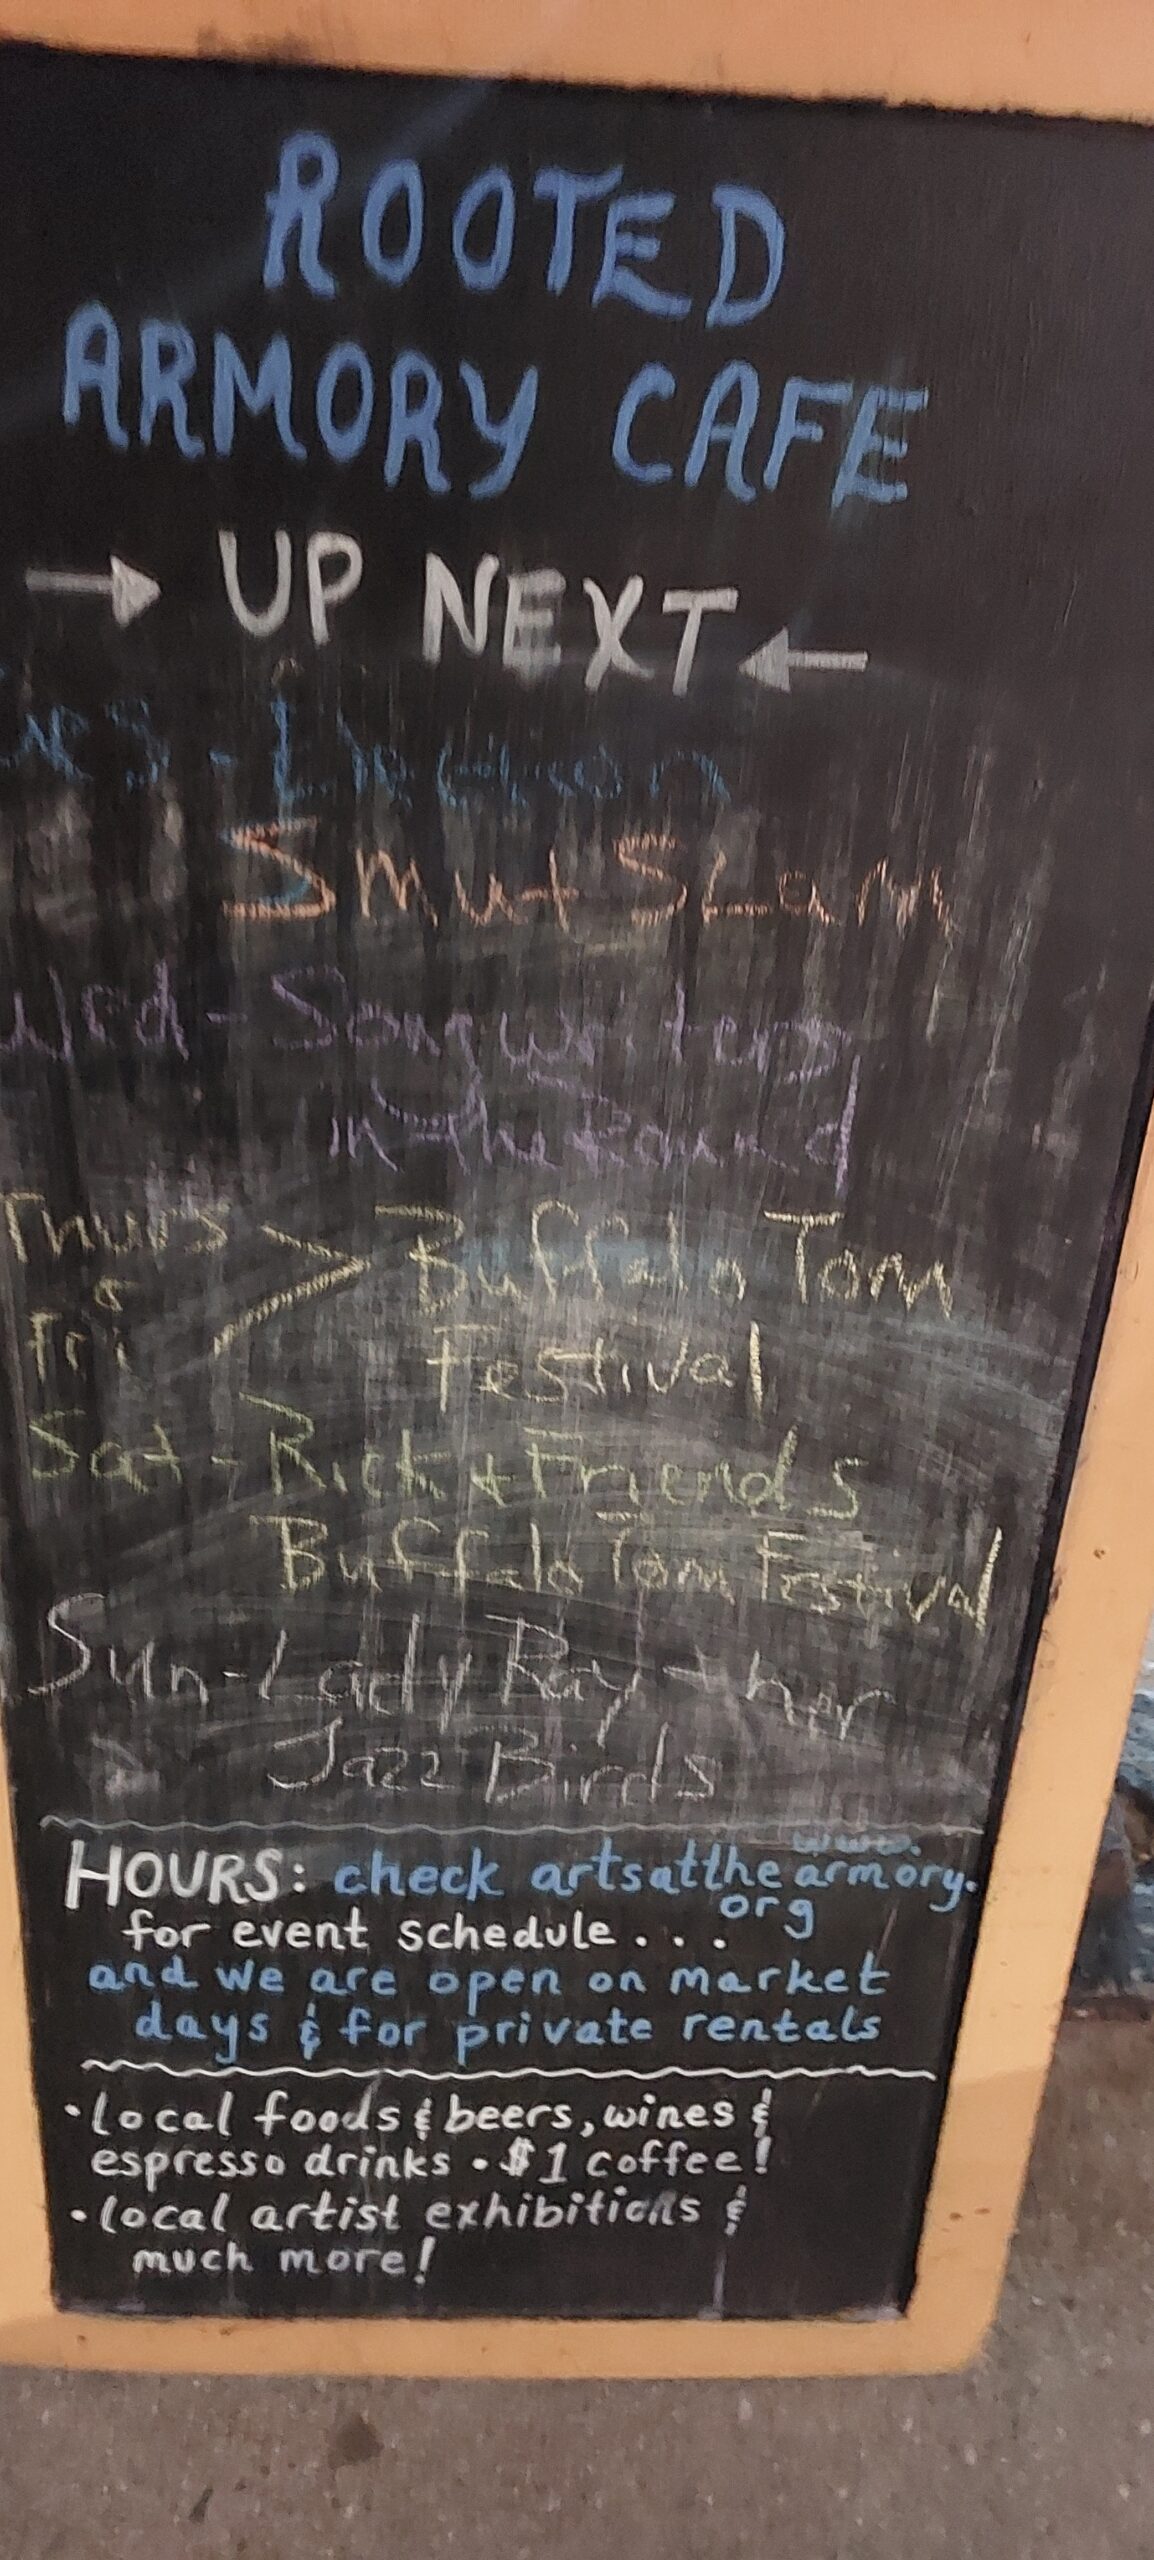 ROOTED
ARMORY CAFE
→ UP NEXT ←
Smut Slam
Wed - Songwriters
in the Round
Thurs > Buffalo Tom
&
Fri Festival
Sat - Rick + Friends
Buffalo Tom Festival
Sun - Lady Ray + her
Jazz Birds
www.
HOURS: check artsatthearmory.
org
for event schedule...
and we are open on market
days & for private rentals
• local foods & beers, wines &
espresso drinks • $1 coffee!
• local artist exhibitions &
much more!